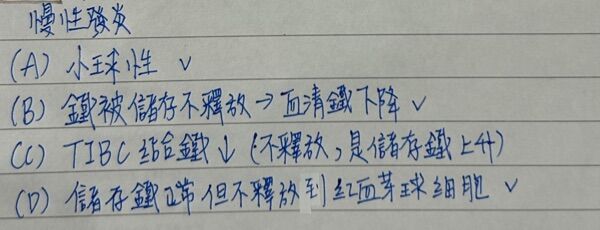 慢性發炎
(A) 小球性 ✓
(B) 鐵被儲存不釋放→血清鐵下降 ✓
(C) TIBC 結合鐵↓ (不釋放,是儲存鐵上升)
(D) 儲存鐵正常但不釋放到紅血芽球細胞 ✓